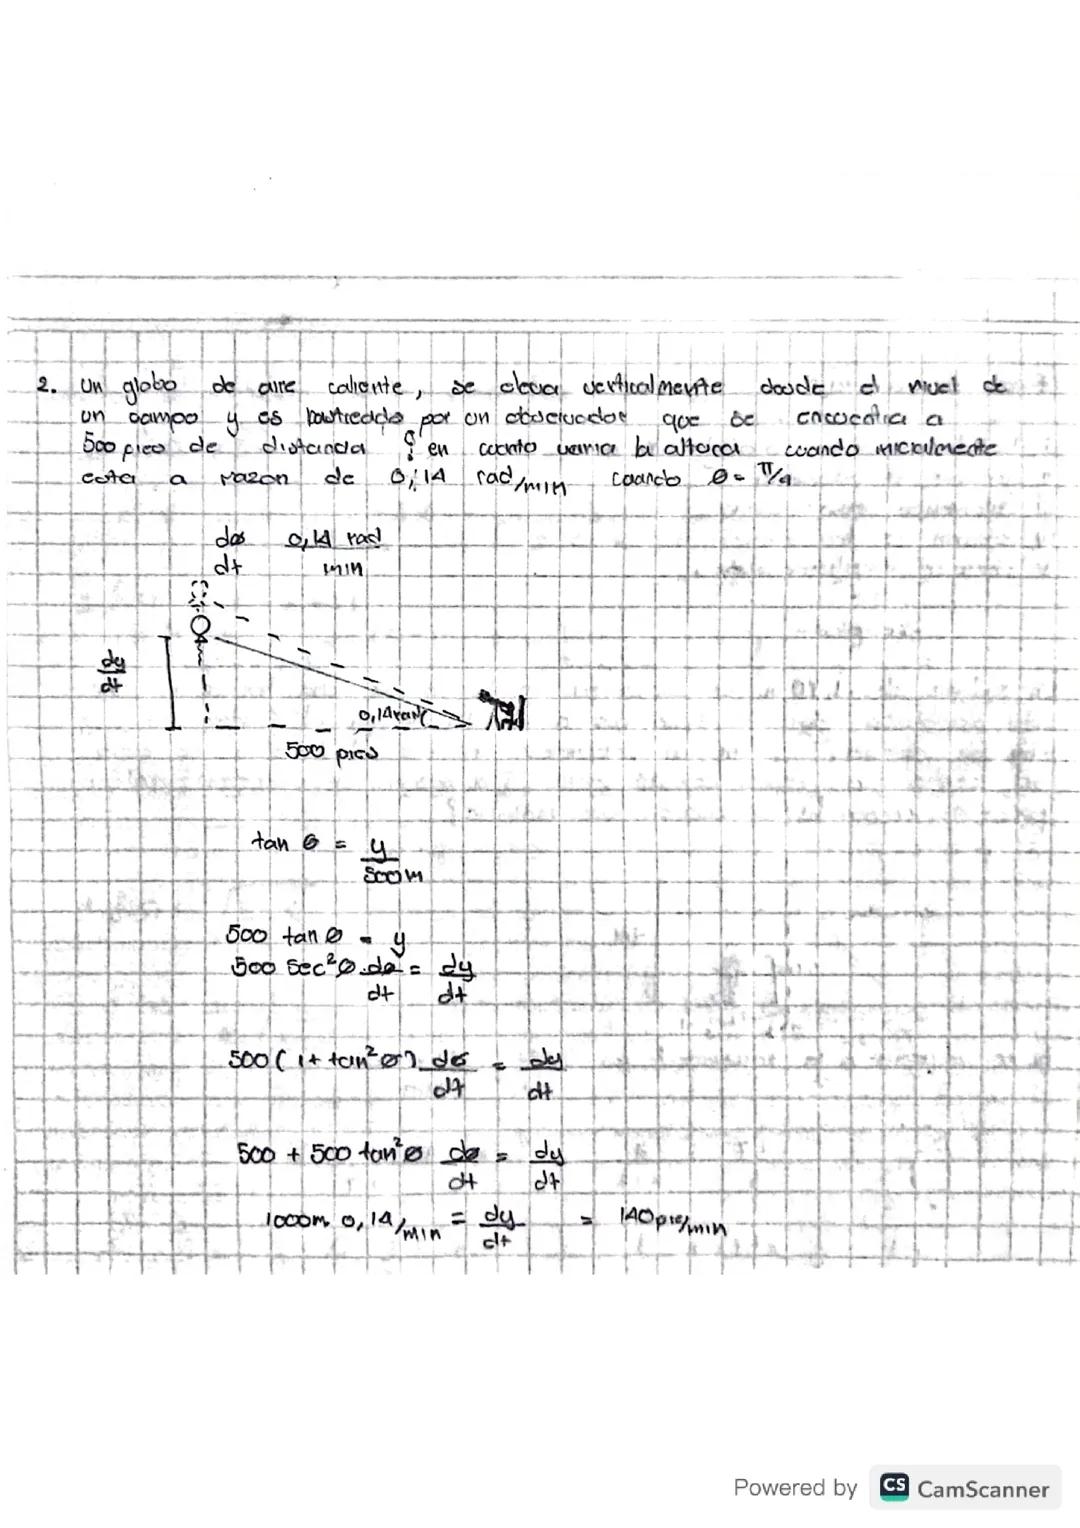 2. Un globo de aire caliente, se eleva verticalmente desde el nivel de
un campo y es rastreado por un observador que se encuentra a
500 pies de distancia ¿ en cuanto varia la altura cuando inicialmente
esta a razon de 0,14 rad/min cuando θ = π/4
dθ 0,14 rad
dt min
dy
dt
0,14 rad
500 pies
tan θ = y
500 m
500 tan θ = y
500 sec²θ . dθ = dy
dt dt
500 ( 1 + tan²θ ) dθ = dy
dt dt
500 + 500 tan²θ dθ = dy
dt dt
1000m 0,14/min = dy = 140 pie/min
dt
Powered by CS CamScanner